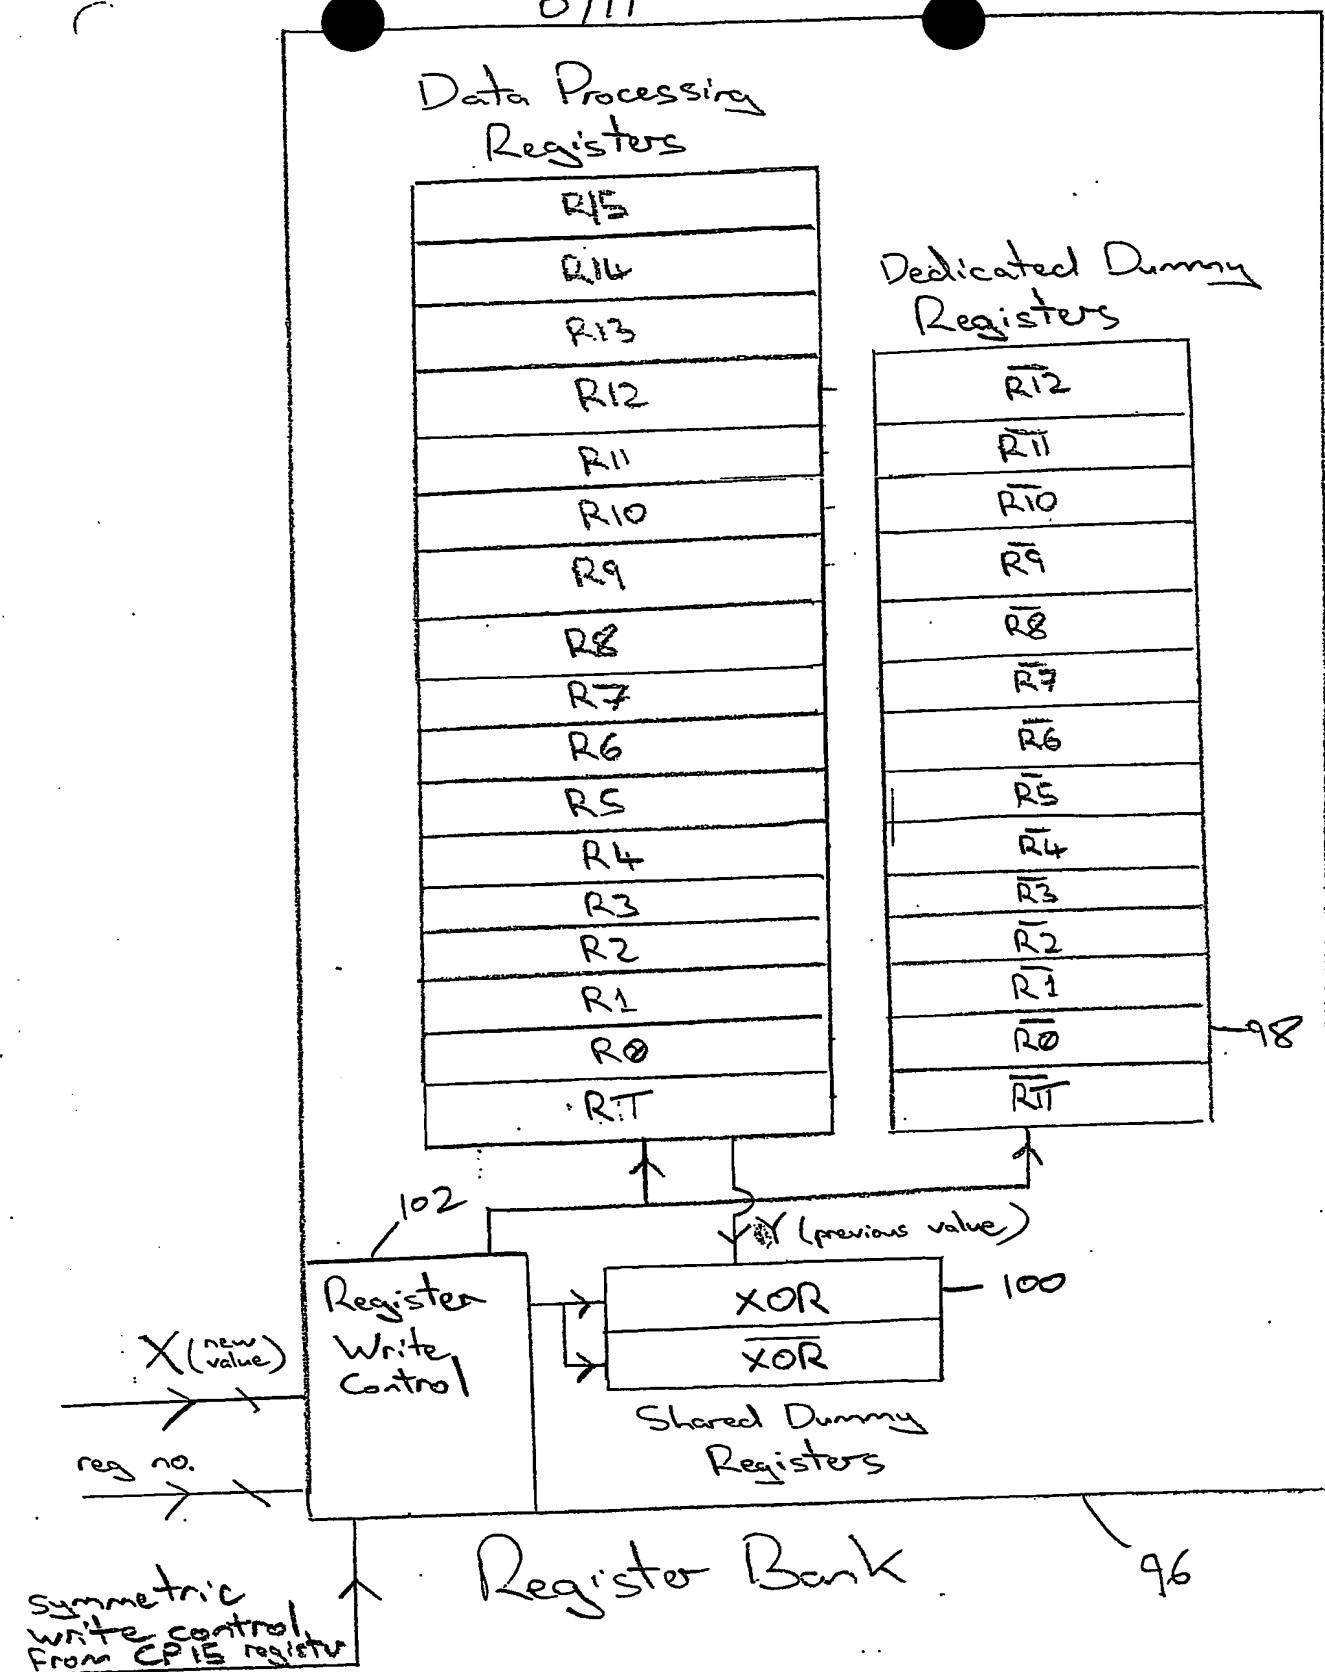 Data Processing
Registers
R15
R14
R13
R12
R11
R10
R9
R8
R7
R6
R5
R4
R3
R2
R1
R0
RT
Dedicated Dummy
Registers
R̅1̅2̅
R̅1̅1̅
R̅1̅0̅
R̅9̅
R̅8̅
R̅7̅
R̅6̅
R̅5̅
R̅4̅
R̅3̅
R̅2̅
R̅1̅
R̅0̅
R̅T̅
98
102
Y (previous value)
Register
Write
Control
XOR
X̅O̅R̅
100
Shared Dummy
Registers
X (new
value)
reg no.
Register Bank
96
symmetric
write control
from CP15 register